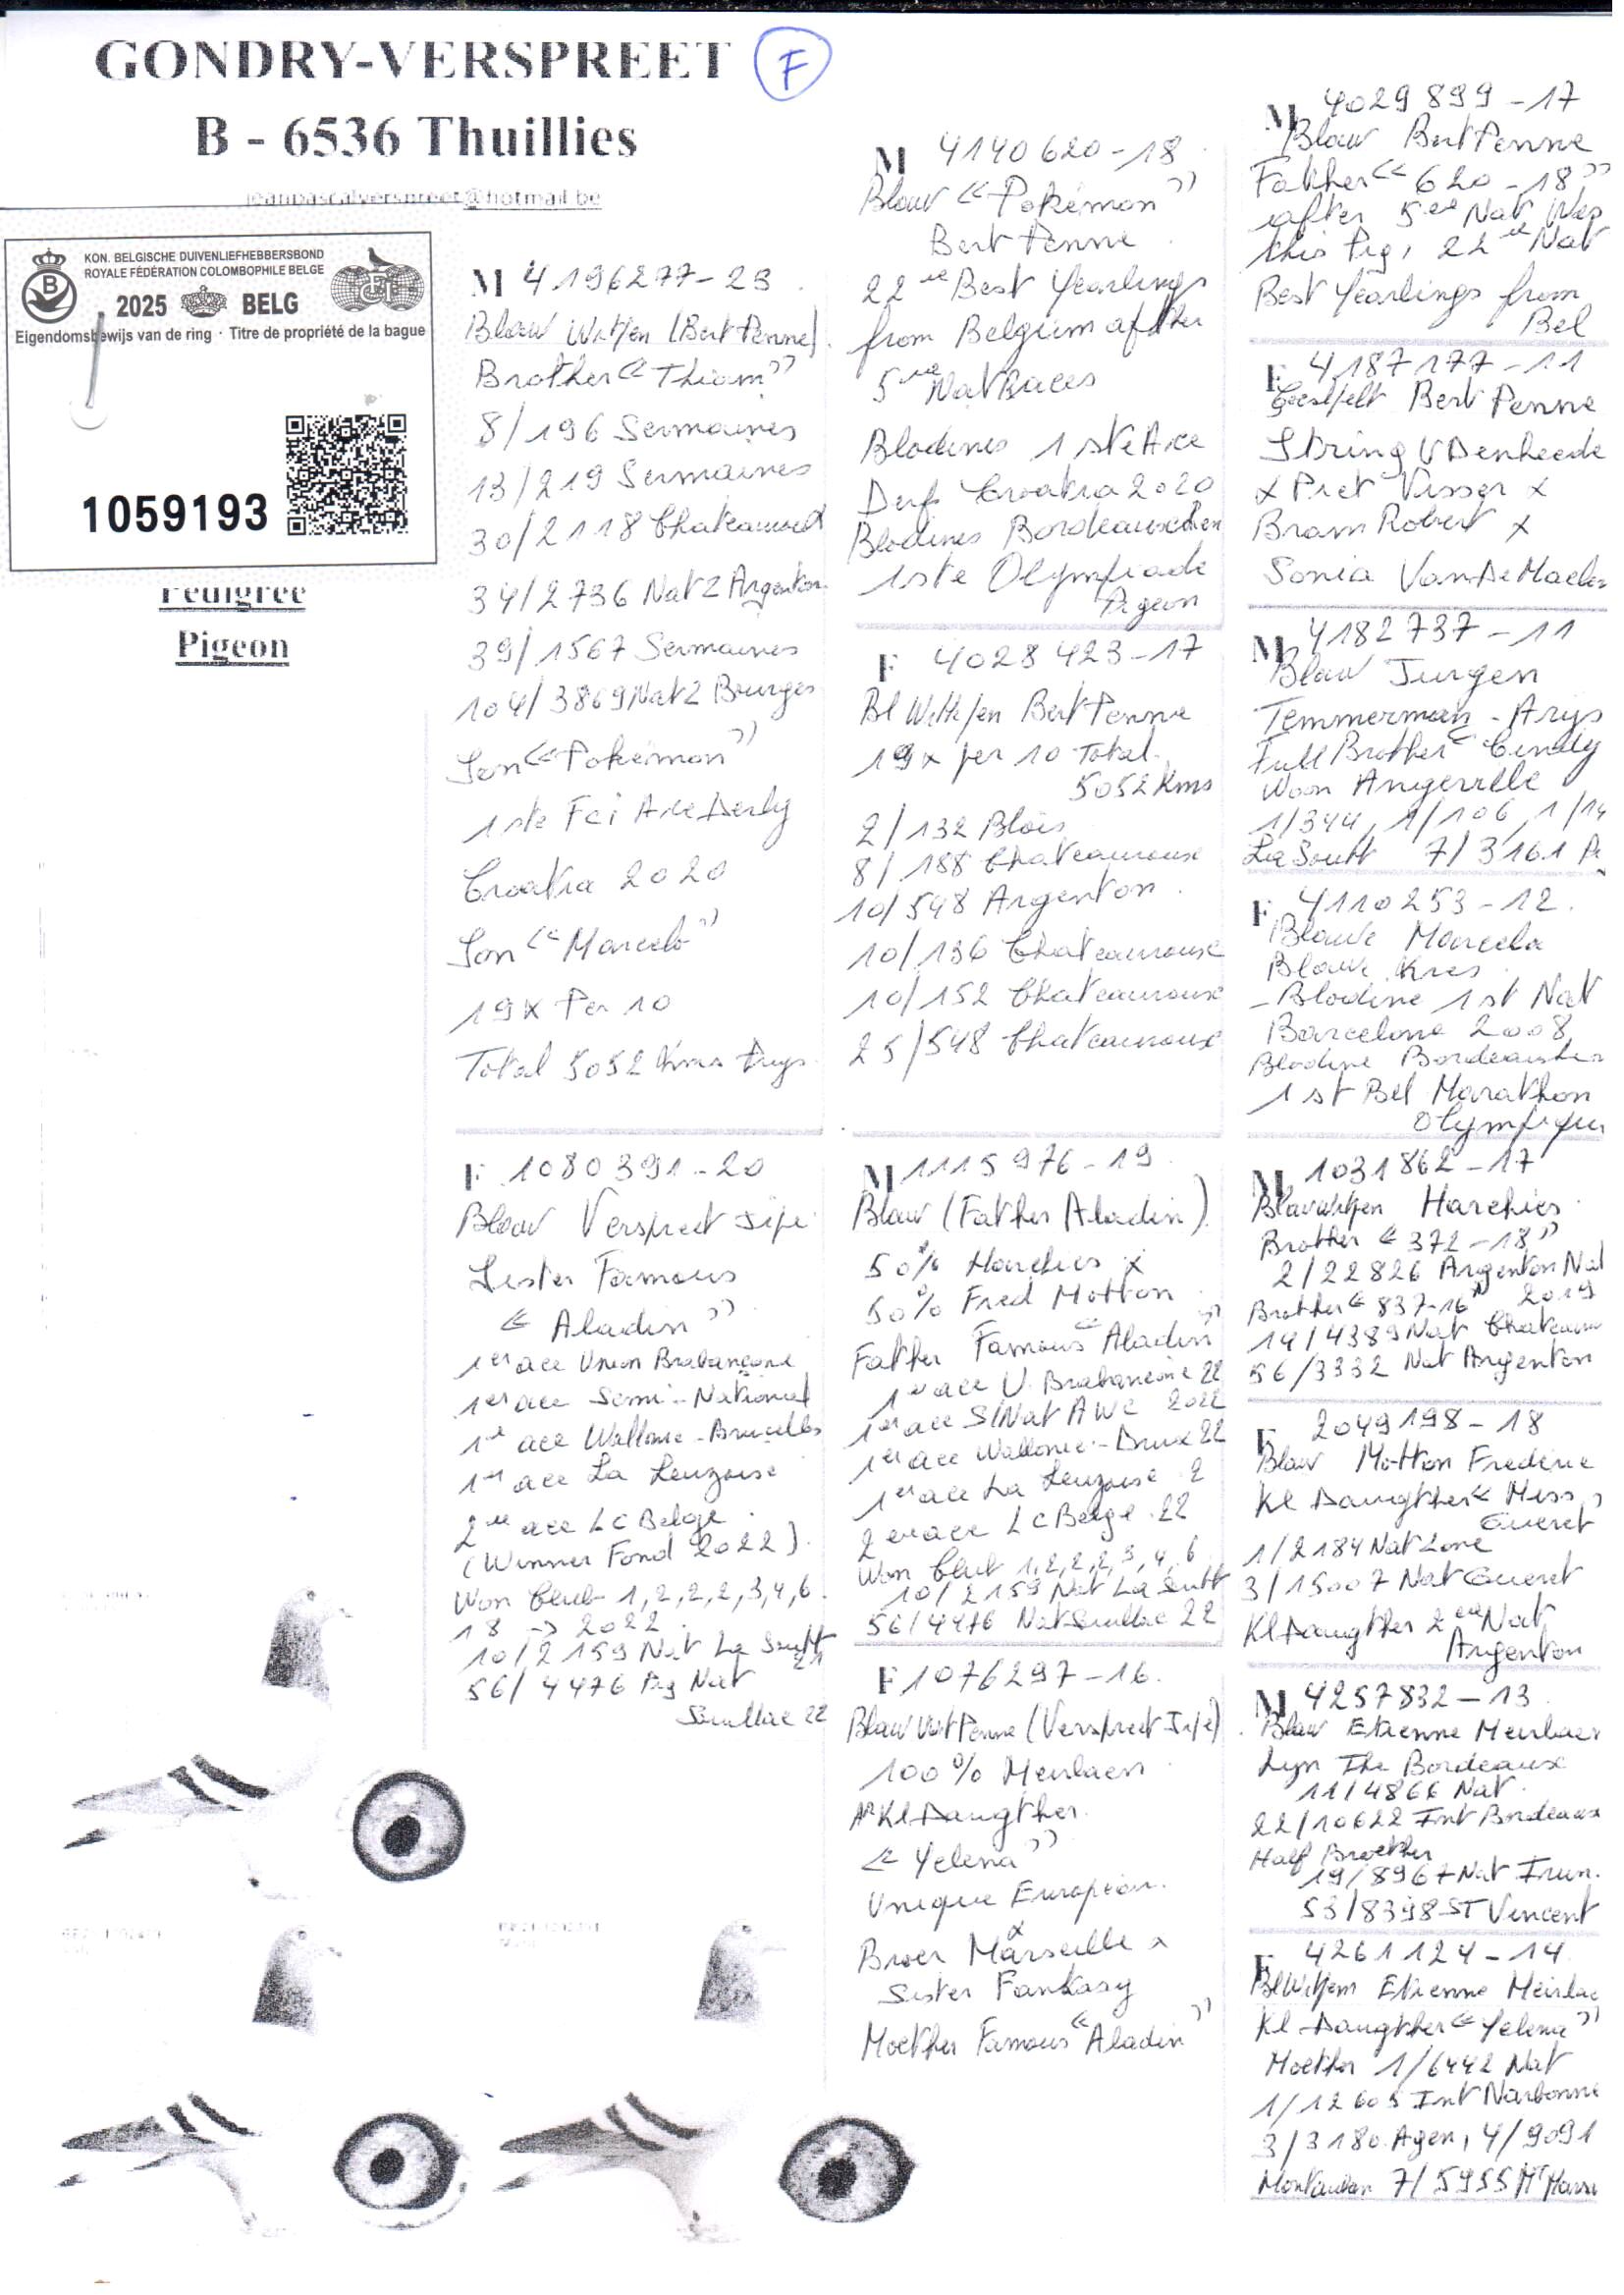 GONDRY-VERSPREET
F
B - 6536 Thuillies
jeanpascalverspreet@hotmail.be
KON. BELGISCHE DUIVENLIEFHEBBERSBOND
ROYALE FÉDÉRATION COLOMBOPHILE BELGE
2025 BELG
Eigendomsbewijs van de ring · Titre de propriété de la bague
1059193
Pedigree
Pigeon
M 4196277-23
Blauw Witpen (Bert Penne)
Brother "Thiam"
8/196 Sermaises
13/219 Sermaises
30/2118 Chateauroux
34/2736 Nat Z Argenton
39/1567 Sermaises
104/3869 Nat Z Bourges
Son "Pokémon"
1ste Fci Ace Derby
Croatia 2020
Son "Marcelo"
19x Per 10
Total 5052 Kms
F 1080391-20
Blauw Verspreet Jipé
Sister Famous
"Aladin"
1er ace Union Brabançonne
1er ace Semi-National
1er ace Wallonie-Bruxelles
1er ace La Leuzoise
2e ace Lc Belge
(Winner Fond 2022)
Won Club 1,2,2,2,3,4,6
18 -> 2022
10/2159 Nat La Soutt 21
56/4476 Pig Nat
Souillac 22
M 4140620-18
Blauw "Pokémon"
Bert Penne
22e Best Yearlings
from Belgium after
5 Nat Races
Blodines 1ste Ace
Derf Croatia 2020
Blodines Bordeaux
1ste Olympiade
Pigeon
F 4028423-17
Bl Witpen Bert Penne
19x per 10 Total
5052 Kms
2/132 Blois
8/188 Chateauroux
10/548 Argenton
10/136 Chateauroux
10/152 Chateauroux
25/548 Chateauroux
M 1115976-19
Blauw (Father Aladin)
50% Harchies x
50% Fred Motton
Father Famous "Aladin"
1er ace U. Brabancone 22
1er ace S/Nat AWC 2022
1er ace Wallonie-Brux 22
1er ace La Leuzoise 2
2e ace Lc Belge 22
Won Club 1,2,2,2,3,4,6
10/2159 Nat La Soutt
56/4476 Nat Souillac 22
F 1076297-16
Blauw Wit Penne (Verspreet Jipé)
100% Meirlaen
Kl Daugther
"Yelena"
Unique European
x
Broer Marseille x
Sister Fantasy
Moether Famous "Aladin"
M 4029899-17
Blauw Bert Penne
Father "620-18"
after 5 Nat
this Pig, 22 Nat
Best Yearlings from
Bel
F 4187177-11
Geschelpt Bert Penne
String V Denheede
x Piet Visser x
Bram Robert x
Sonia Van De Maele
M 4182737-11
Blauw Jurgen
Temmerman - Arijs
Full Brother "Cindy"
Won Angerville
1/344, 1/106, 1/14
La Soutt 7/3161 P
F 4110253-12
Blauw Marcela
Blauw Kres
-Blodine 1st Nat
Barcelone 2008
Blodine Bordeaux
1st Bel Marathon
Olympique
M 1031862-17
Blauw witpen Harchies
Brother "372-18"
2/22826 Argenton Nat
2019
Brother "837-16"
14/4389 Nat Chateauroux
56/3332 Nat Argenton
F 2049198-18
Blauw Motton Frederic
Kl Daugther "Miss
Gueret"
1/2184 Nat Zone
3/15007 Nat Gueret
Kl Daugther 2e Nat
Argenton
M 4257832-13
Blauw Etienne Meirlaen
Lyn The Bordeaux
11/4866 Nat
22/10622 Int Bordeaux
Half Broether
19/8967 Nat Irun
53/8398 ST Vincent
F 4261124-14
Bl Witpen Etienne Meirlae
Kl Daugther "Yelena"
Moether 1/6442 Nat
1/12605 Int Narbonne
3/3180 Agen, 4/9091
Montauban 7/5955 Mt Marsa